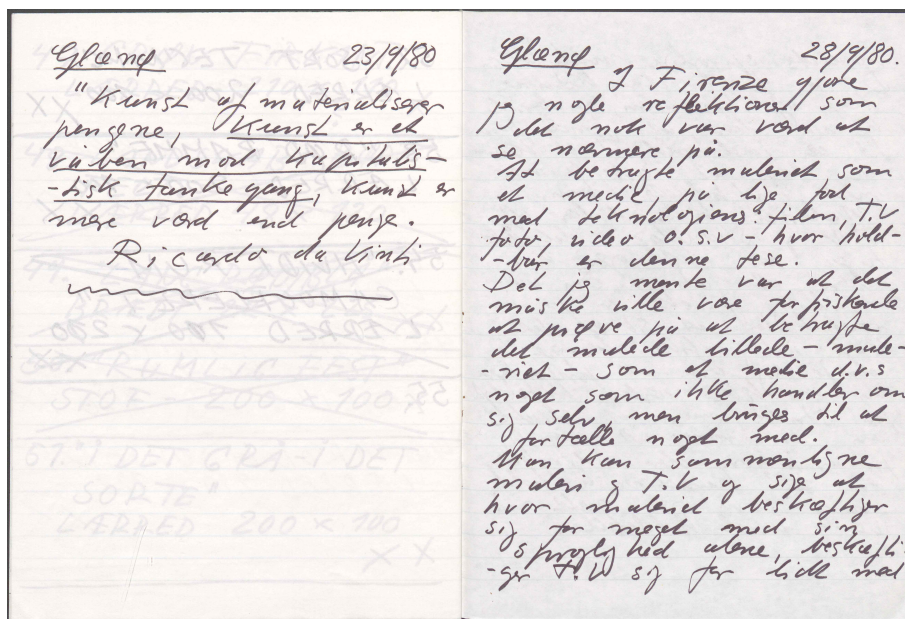 Glænø 23/9/80
"Kunst afmaterialiserer
pengene, Kunst er et
våben mod kapitalis-
-tisk tankegang, kunst er
mere værd end penge.
Ricardo da Vinti
Glænø 28/9/80.
I Firenze gjore
jeg nogle reflektioner som
det nok var værd at
se nærmere på.
At betragte maleriet som
et medie på lige fod
med teknologiens: film, T.V
foto, video o.s.v - hvor hold-
-bar er denne tese.
Det jeg mente var at det
måske ville være forfriskende
at prøve på at betragte
det malede billede - male-
-riet - som et medie d.v.s
noget som ikke handler om
sig selv, men bruges til at
fortælle noget med.
Man kan sammenligne
maleri og T.V og sige at
hvor maleriet beskæftiger
sig for meget med sin
sproglighed alene, beskæfti-
-ger T.V sig for lidt med
51. "I DET GRÅ - I DET
SORTE"
LÆRRED 200 x 100
X X